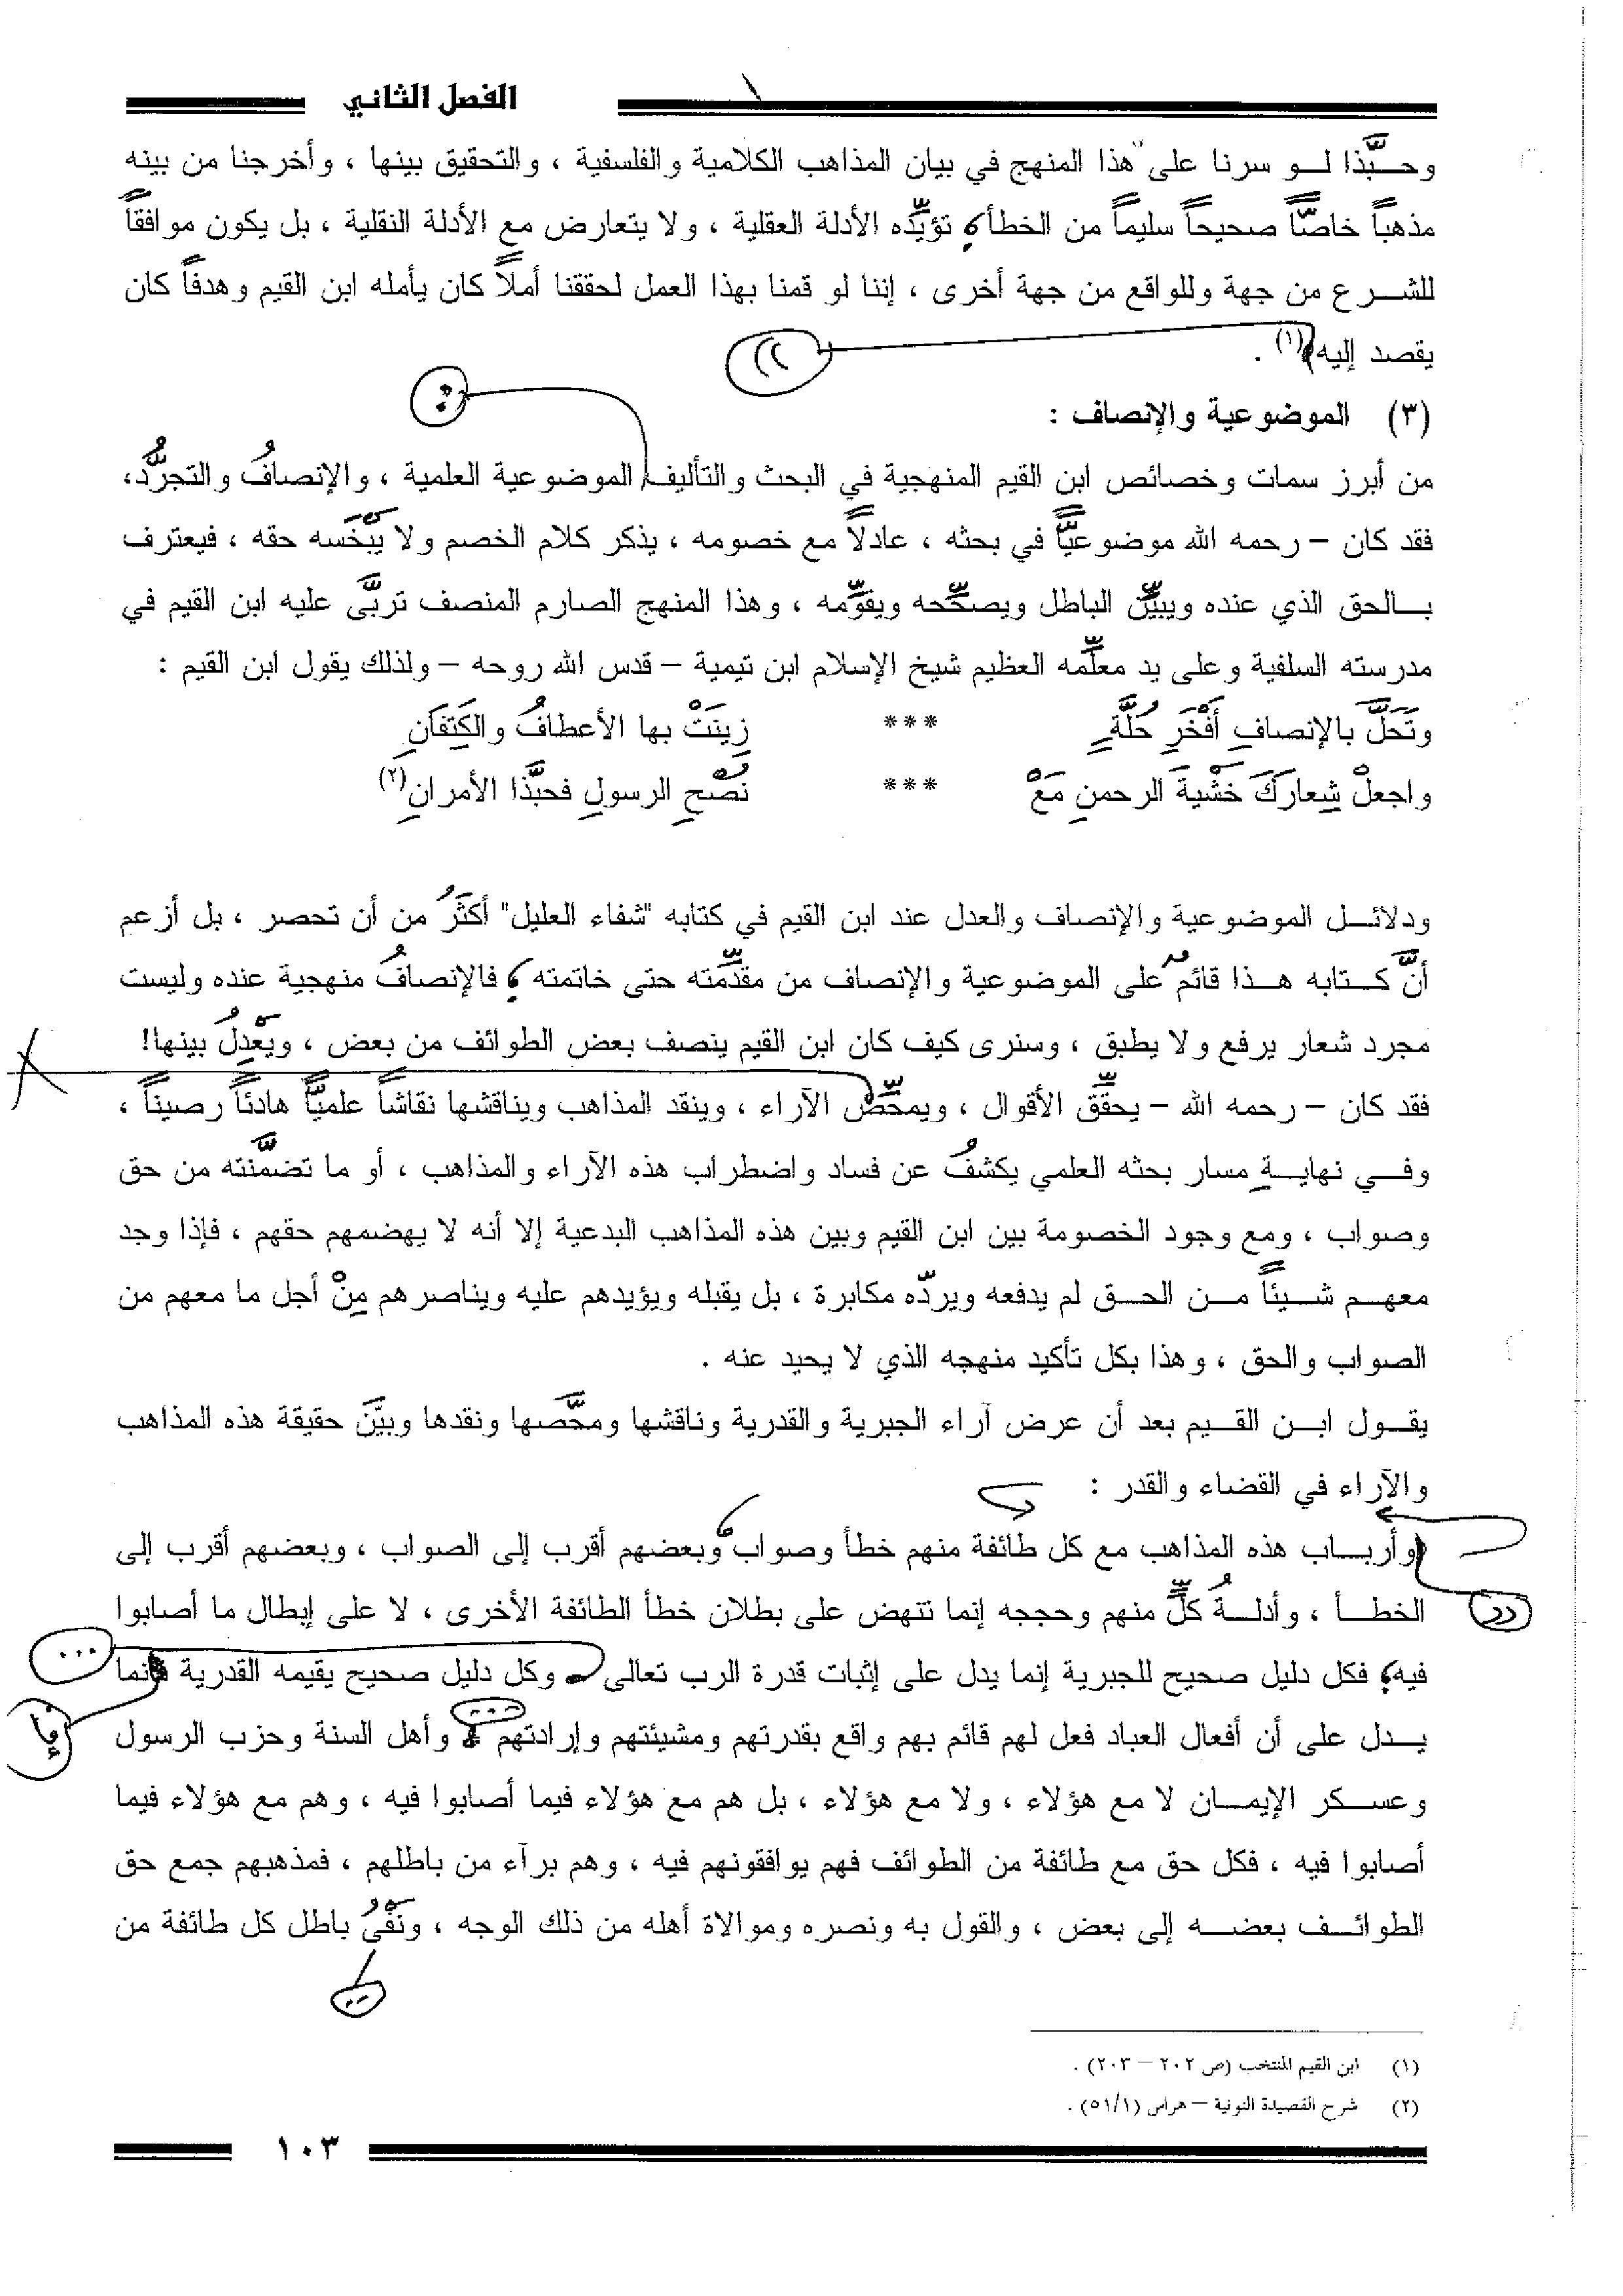 الفصل الثاني
وحبَّذا لو سرنا على هذا المنهج في بيان المذاهب الكلامية والفلسفية ، والتحقيق بينها ، وأخرجنا من بينه
مذهباً خاصّاً صحيحاً سليماً من الخطأ، تؤيِّده الأدلة العقلية ، ولا يتعارض مع الأدلة النقلية ، بل يكون موافقاً
للشرع من جهة وللواقع من جهة أخرى ، إننا لو قمنا بهذا العمل لحققنا أملاً كان يأمله ابن القيم وهدفاً كان
يقصد إليه(١) .
((
(٣) الموضوعية والإنصاف :
:
من أبرز سمات وخصائص ابن القيم المنهجية في البحث والتأليف الموضوعية العلمية ، والإنصافُ والتجرُّدُ،
فقد كان – رحمه الله موضوعيّاً في بحثه ، عادلاً مع خصومه ، يذكر كلام الخصم ولا يَبْخَسه حقه ، فيعترف
بالحق الذي عنده ويبيِّن الباطل ويصحِّحه ويقوِّمه ، وهذا المنهج الصارم المنصف تربَّى عليه ابن القيم في
مدرسته السلفية وعلى يد معلِّمه العظيم شيخ الإسلام ابن تيمية – قدس الله روحه – ولذلك يقول ابن القيم :
وتَحَلَّ بالإنصافِ أَفْخَرِ حُلَّةٍ *** زِينَتْ بها الأعطافُ والكَتِفَانِ
واجعلْ شِعارَكَ خَشْيةَ الرحمنِ مَعْ *** نُصْحِ الرسولِ فحبَّذا الأمرانِ(٢)
ودلائل الموضوعية والإنصاف والعدل عند ابن القيم في كتابه "شفاء العليل" أكثَرُ من أن تحصر ، بل أزعم
أنَّ كتابه هذا قائمٌ على الموضوعية والإنصاف من مقدِّمته حتى خاتمته ، فالإنصافُ منهجية عنده وليست
مجرد شعار يرفع ولا يطبق ، وسنرى كيف كان ابن القيم ينصف بعض الطوائف من بعض ، ويَعْدِلُ بينها!
فقد كان – رحمه الله – يحقِّق الأقوال ، ويمحِّص الآراء ، وينقد المذاهب ويناقشها نقاشاً علميّاً هادئاً رصيناً ،
وفي نهايةِ مسار بحثه العلمي يكشفُ عن فساد واضطراب هذه الآراء والمذاهب ، أو ما تضمَّنته من حق
وصواب ، ومع وجود الخصومة بين ابن القيم وبين هذه المذاهب البدعية إلا أنه لا يهضمهم حقهم ، فإذا وجد
معهم شيئاً من الحق لم يدفعه ويردّه مكابرة ، بل يقبله ويؤيدهم عليه ويناصرهم مِنْ أجل ما معهم من
الصواب والحق ، وهذا بكل تأكيد منهجه الذي لا يحيد عنه .
يقول ابن القيم بعد أن عرض آراء الجبرية والقدرية وناقشها ومحَّصها ونقدها وبيَّن حقيقة هذه المذاهب
والآراء في القضاء والقدر :
وأرباب هذه المذاهب مع كل طائفة منهم خطأ وصواب، وبعضهم أقرب إلى الصواب ، وبعضهم أقرب إلى
الخطأ ، وأدلةُ كلٍّ منهم وحججه إنما تنهض على بطلان خطأ الطائفة الأخرى ، لا على إبطال ما أصابوا
))
فيه، فكل دليل صحيح للجبرية إنما يدل على إثبات قدرة الرب تعالى وكل دليل صحيح يقيمه القدرية فإنما
...
يدل على أن أفعال العباد فعل لهم قائم بهم واقع بقدرتهم ومشيئتهم وإرادتهم ... وأهل السنة وحزب الرسول
وعسكر الإيمان لا مع هؤلاء ، ولا مع هؤلاء ، بل هم مع هؤلاء فيما أصابوا فيه ، وهم مع هؤلاء فيما
أصابوا فيه ، فكل حق مع طائفة من الطوائف فهم يوافقونهم فيه ، وهم برآء من باطلهم ، فمذهبهم جمع حق
الطوائف بعضه إلى بعض ، والقول به ونصره وموالاة أهله من ذلك الوجه ، ونَفْيُ باطل كل طائفة من
(١) ابن القيم المنتخب (ص ٢٠٢ – ٢٠٣) .
(٢) شرح القصيدة النونية – هراس (٥١/١) .
١٠٣